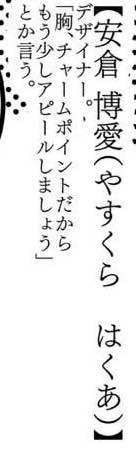 【安倉 博愛(やすくら はくあ)】
デザイナー。
「胸、チャームポイントだから
もう少しアピールしましょう」
とか言う。